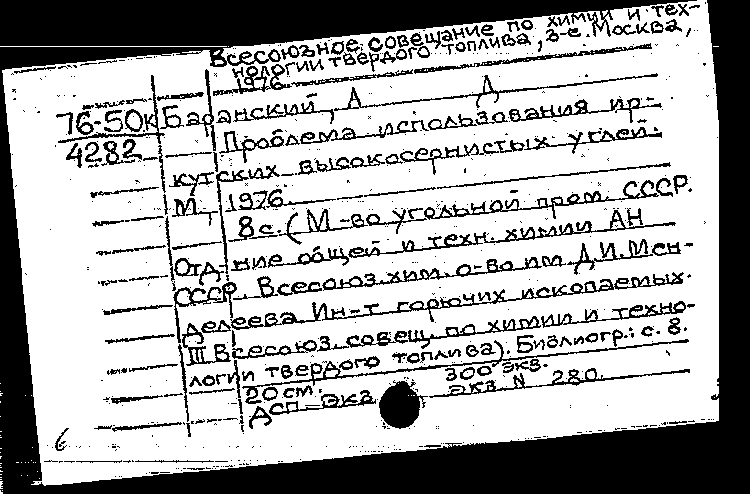 Всесоюзное совещание по химии и тех-
нологии твердого топлива, 3-е. Москва,
1976
76-50к Баранский, А Д
4282 Проблема использования ир-
кутских высокосернистых углей.
М., 1976.
8с. (М-во угольной пром. СССР.
Отд-ние общей и техн. химии АН
СССР. Всесоюз. хим. о-во им. Д.И. Мен-
делеева. Ин-т горючих ископаемых.
III Всесоюз. совещ. по химии и техно-
логии твердого топлива). Библиогр.: с. 8.
20 см. 300 экз.
ДСП экз экз N 280.
6